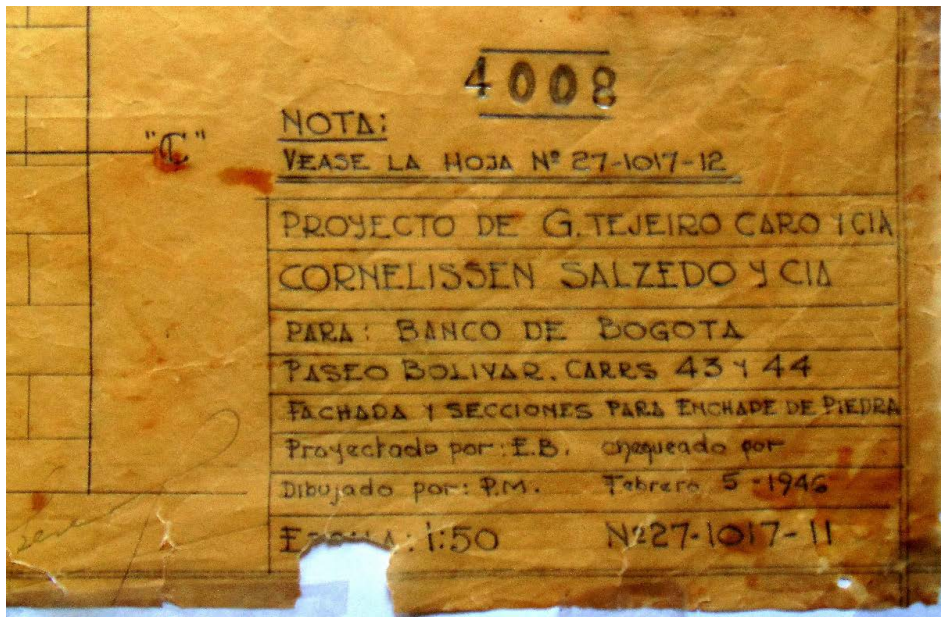 4008
"C"
NOTA:
VEASE LA HOJA Nº 27-1017-12
PROYECTO DE G. TEJEIRO CARO Y CIA
CORNELISSEN SALZEDO Y CIA
PARA: BANCO DE BOGOTA
PASEO BOLIVAR. CARRS 43 Y 44
FACHADA Y SECCIONES PARA ENCHAPE DE PIEDRA
Proyectado por: E.B. chequeado por
Dibujado por: P.M. Febrero 5-1946
: 1:50 Nº27-1017-11